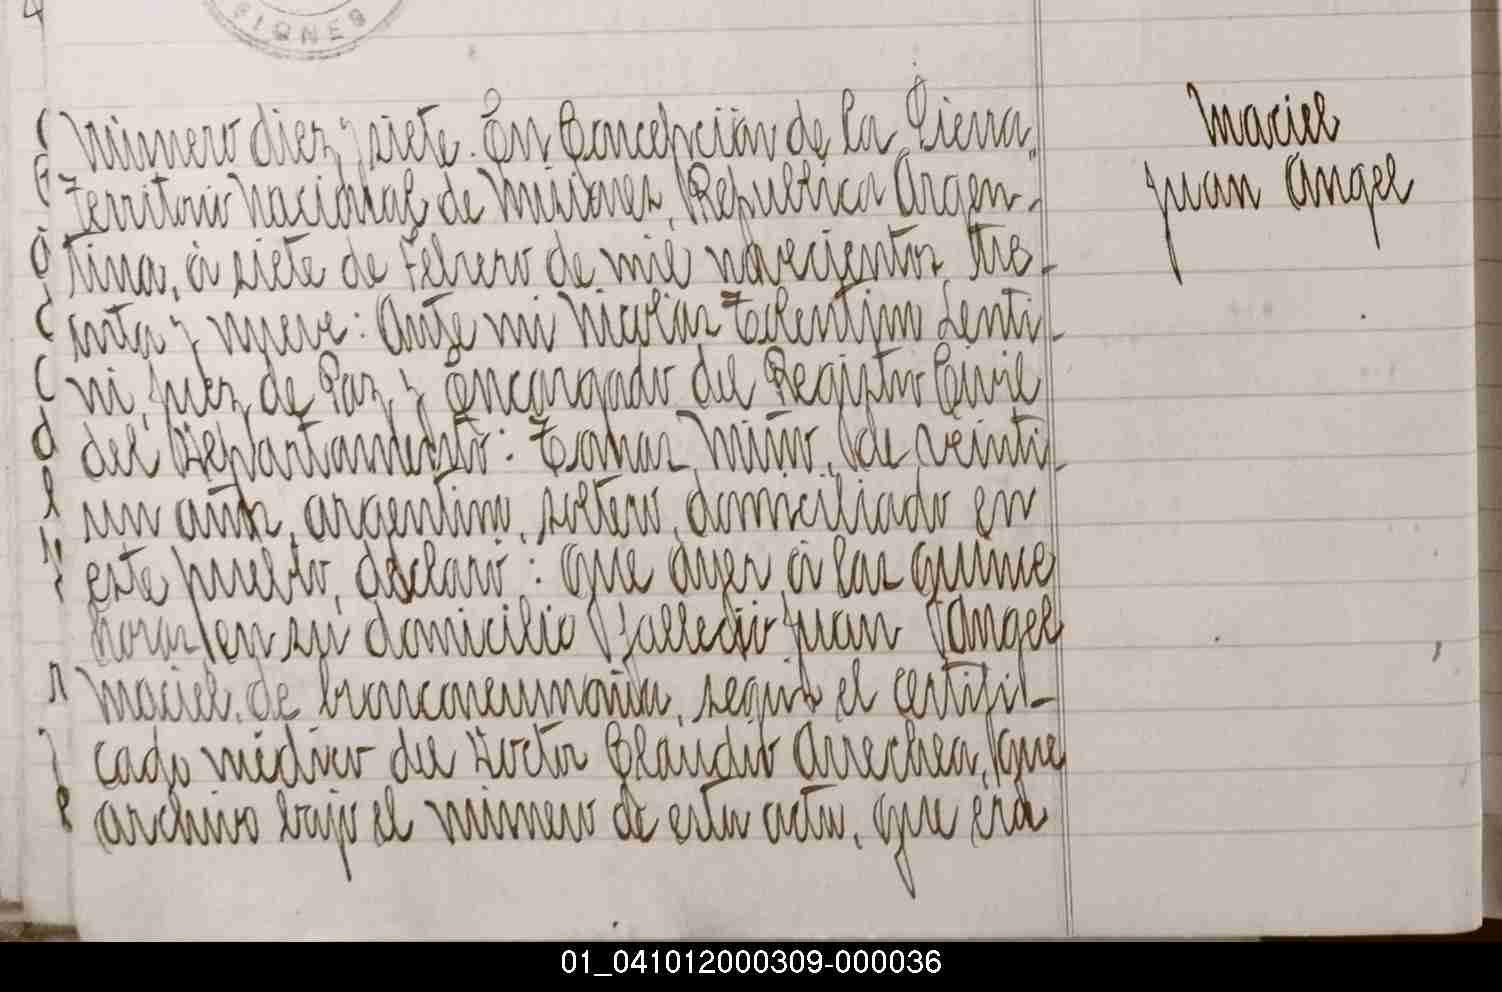 SIONES
Número diez y siete. En Concepción de la Sierra,
Territorio Nacional de Misiones, República Argen-
tina, á siete de Febrero de mil novecientos tre-
inta y nueve: Ante mi Nicolás Tolentino Lenti-
ni, Juez de Paz y Encargado del Registro Civil
del Departamento: Tomas Miño, de veinti-
un años, argentino, soltero, domiciliado en
este pueblo, declaró: Que ayer, á las quince
horas en su domicilio falleció Juan Angel
Maciel, de bronconeumonia, según el certifi-
cado médico del Doctor Claudio Arrechea, que
archivo bajo el número de esta acta, que era
Maciel
Juan Angel
01_041012000309-000036